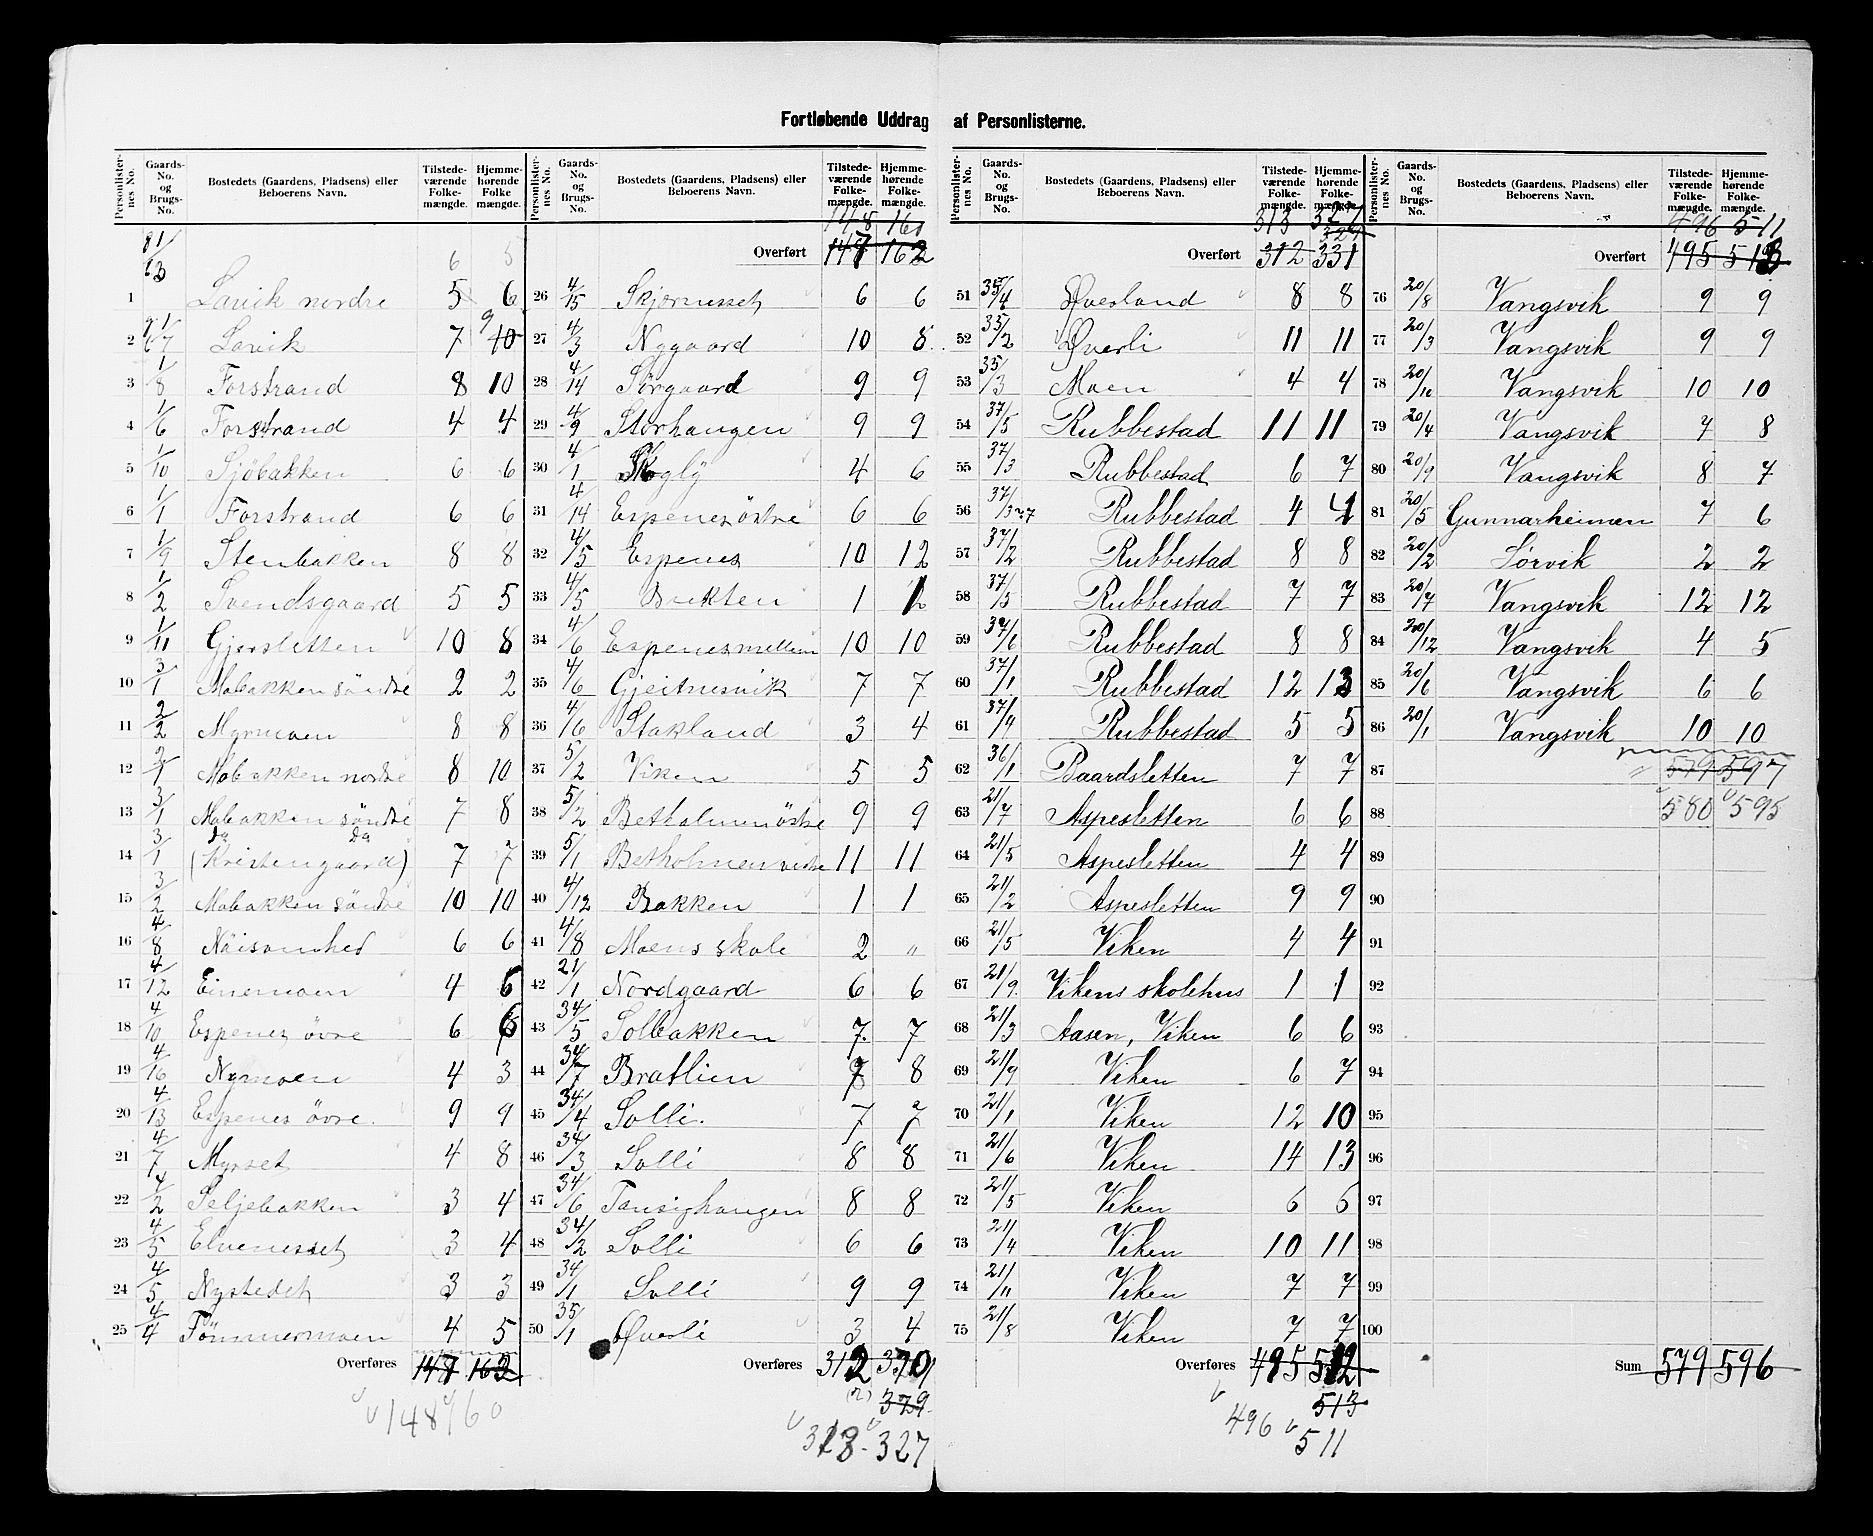 Fortløbende Uddrag af Personlisterne.
Personlister- nes No. Gaards- No. og Brugs- No. Bostedets (Gaardens, Pladsens) eller Beboerens Navn. Tilstede- værende Folke- mængde. Hjemme- hørende Folke mængde.
1 Lavik nordre 5 6
2 Lavik 7 10
3 1/8 Forstrand 8 10
4 1/6 Forstrand 4 4
5 1/10 Sjöbakken 6 6
6 1/1 Forstrand 6 6
7 1/9 Stenbakken 8 8
8 1/2 Svendsgaard 5 5
9 1/11 Gjersletten 10 8
10 3/1 Mobakken söndre 2 2
11 2/2 Myrmoen 8 8
12 2/1 Mobakken nordre 8 10
13 3/1 Mobakken söndre 7 8
14 3/1 (Kristengaard) 7 7
15 3/2 Mobakken söndre 10 10
16 4/8 Nöisomhed 6 6
17 4/12 Einemoen 4 6
18 4/10 Espenes övre 6 6
19 4/16 Nymoen 4 3
20 4/13 Espenes övre. 9 9
21 4/7 Myrset 4 8
22 4/2 Seljebakken 3 4
23 4/5 Elvenesset 3 4
24 4/5 Nystedet 3 3
25 4/4 Tömmermoen 4 5
Overføres 147 162
148 160
Personlister- nes No. Gaards- No. og Brugs- No. Bostedets (Gaardens, Pladsens) eller Beboerens Navn. Tilstede- værende Folke- mængde. Hjemme- hørende Folke- mængde.
148 160
Overført 147 162
26 4/15 Skjærnesset 6 6
27 4/3 Nygaard 10 8
28 4/14 Sörgaard 9 9
29 4/9 Storhaugen 9 9
30 4/1 Skogly 4 6
31 4/14 Espenes östre 6 6
32 4/5 Espenes 10 12
33 4/5 1
34 4/6 Espenes mellem 10 10
35 4/6 Gjeitnesvik 7 7
36 4/6 Stakland 3 4
37 5/2 Viken 5 5
38 5/2 Betholmen östre 9 9
39 5/1 Betholmen vestre 11 11
40 4/12 Bakken 1 1
41 4/8 Moens skole 2 "
42 21/1 Nordgaard 6 6
43 34/5 Solbakken 7 7
44 34/7 Bratlien 8
45 34/4 Solli. 7 7
46 34/3 Solli 8 8
47 34/6 8 8
48 34/2 Solli 6 6
49 34/1 Solli 9 9
50 35/1 Øverli 3 4
Overføres 312
329
313 327
Personlister- nes No. Gaards- No. og Brugs- No. Bostedets (Gaardens, Pladsens) eller Beboerens Navn. Tilstede- værende Folke- mængde. Hjemme- hørende Folke- mængde.
313 327
Overført 312 331
51 35/4 Øverland 8 8
52 35/2 Øverli 11 11
53 35/3 Moen 4 4
54 37/5 Rubbestad 11 11
55 37/3 Rubbestad 6 7
56 37/3 Rubbestad 4 4
57 37/2 Rubbestad 8 8
58 37/5 Rubbestad 7 7
59 37/6 Rubbestad 8 8
60 37/1 Rubbestad 12 13
61 37/4 Rubbestad 5 5
62 36/1 Baardsletten 7 7
63 21/7 Aspesletten 6 6
64 21/5 Aspesletten 4 4
65 21/2 Aspesletten 9 9
66 21/5 Viken 4 4
67 21/9 Vikens skolehus 1 1
68 21/3 Aasen, Viken 6 6
69 21/9 Viken 6 7
70 21/1 Viken 12 10
71 21/6 Viken 14 13
72 21/5 Viken 6 6
73 21/4 Viken 10 11
74 21/11 Viken 7 7
75 21/8 Viken 7 7
Overføres 495 512
513
496 511
Personlister- nes No. Gaards- No. og Brugs- No. Bostedets (Gaardens, Pladsens) eller Beboerens Navn. Tilstede- værende Folke- mængde. Hjemme- hørende Folke- mængde.
496 511
Overført 495 513
76 20/8 Vangsvik 9 9
77 20/3 Vangsvik 9 9
78 20/10 Vangsvik 10 10
79 20/4 Vangsvik 7 8
80 20/9 Vangsvik 8 7
81 20/5 Gunnarheimen 7 6
82 20/2 Sörvik 2 2
83 20/7 Vangsvik 12 12
84 20/12 Vangsvik 4 5
85 20/6 Vangsvik 6 6
86 20/1 Vangsvik 10 10
87 579 597
88 580 595
89
90
91
92
93
94
95
96
97
98
99
100
Sum 579 596